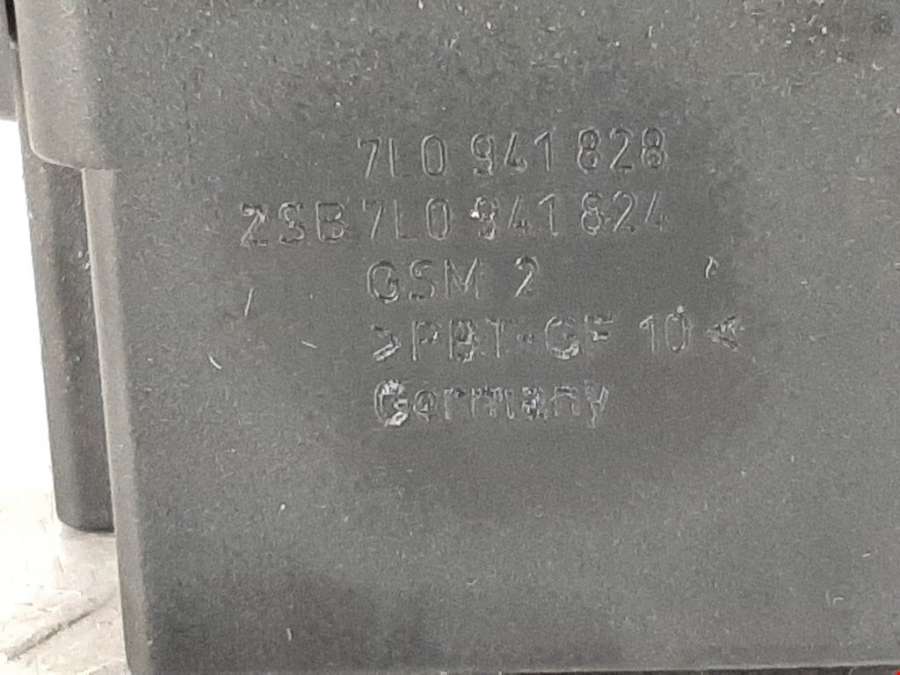 7L0 941 828
ZSB 7L0 941 824
GSM 2
>PBT-GF 10<
Germany